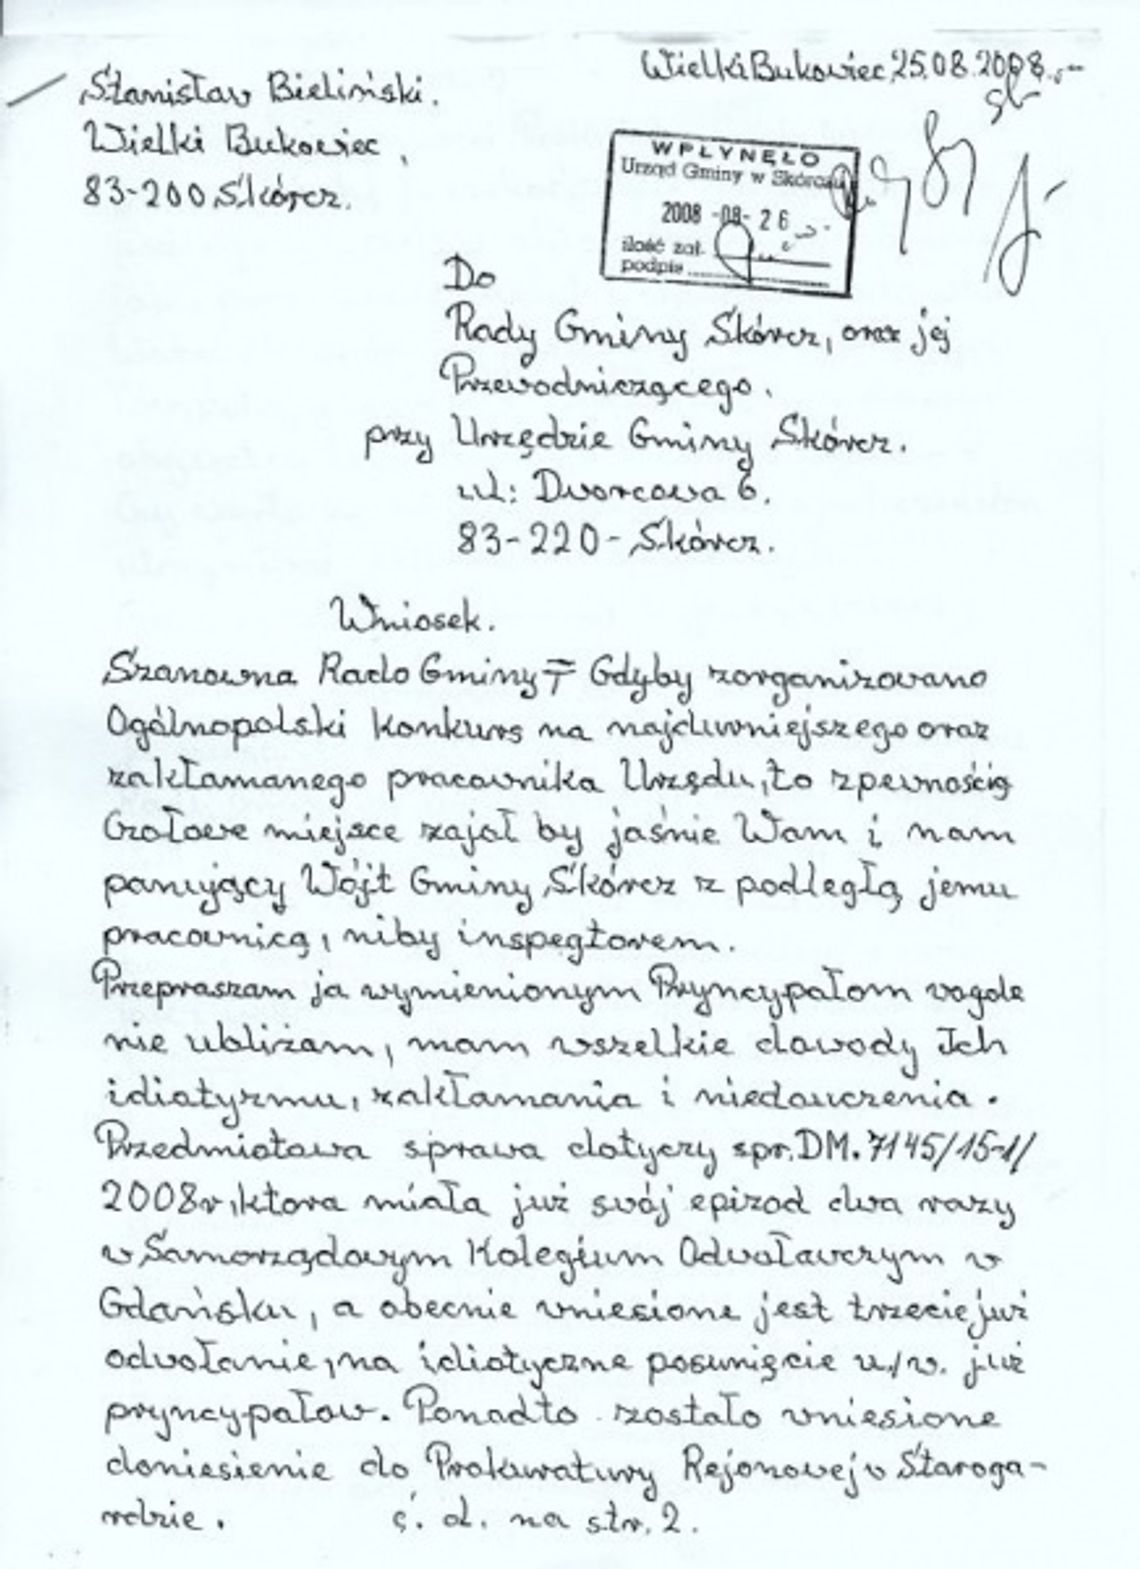 Wielki Bukowiec, 25.08.2008.
Stanisław Bieliński.
Wielki Bukowiec,
83-200 Skórcz.
WPŁYNĘŁO
Urząd Gminy w Skórczu
2008 -08- 26
ilość zał.
podpis
Do
Rady Gminy Skórcz, oraz jej
Przewodniczącego.
przy Urzędzie Gminy Skórcz.
ul: Dworcowa 6.
83-220-Skórcz.
Wniosek.
Szanowna Rado Gminy Gdyby zorganizowano
Ogólnopolski konkurs na najdurniejszego oraz
zakłamanego pracownika Urzędu, to zpewnością
Czołowe miejsce zajął by jaśnie Wam i nam
panujący Wójt Gminy Skórcz z podległą jemu
pracownicą, niby inspegtorem.
Przepraszam ja wymienionym Pryncypałom wogole
nie ubliżam, mam wszelkie dowody Ich
idiotyzmu, zakłamania i niedouczenia.
Przedmiotowa sprawa dotyczy spr. DM. 7145/15-1/
2008r, ktora miała już swój epizod dwa razy
w Samorządowym Kolegium Odwoławczym w
Gdańsku, a obecnie wniesione jest trzecie już
odwołanie, na idiotyczne posunięcie u./w. już
pryncypałow. Ponadto zostało wniesione
doniesienie do Prokuratury Rejonowej w Staroga-
rdzie. ć. d. na str. 2.